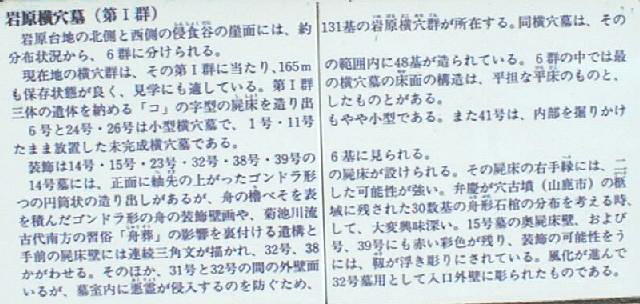 岩原横穴墓（第Ⅰ群）
岩原台地の北側と西側の侵食谷の崖面には、約131基の岩原横穴群が所在する。同横穴墓は、その
分布状況から、6群に分けられる。
現在地の横穴群は、その第Ⅰ群に当たり、165mの範囲内に48基が造られている。6群の中では最
も保存状態が良く、見学にも適している。第Ⅰ群の横穴墓の床面の構造は、平担な平床のものと、
三体の遺体を納める「コ」の字型の屍床を造り出したものとがある。
6号と24号・26号は小型横穴墓で、1号・11号もやや小型である。また41号は、内部を掘りかけ
たまま放置した未完成横穴墓である。
装飾は14号・15号・23号・32号・38号・39号の6基に見られる。
14号墓には、正面に舳先の上がったゴンドラ形の屍床が設けられる。その屍床の右手縁には、二
つの円筒状の造り出しがあるが、舟の櫓べそを表した可能性が強い。弁慶が穴古墳（山鹿市）の柩
を積んだゴンドラ形の舟の装飾壁画や、菊池川流域に残された30数基の舟形石棺の分布を考える時、
古代南方の習俗「舟葬」の影響を裏付ける遺構として、大変興味深い。15号墓の奥屍床壁、および
手前の屍床壁には連続三角文が描かれ、32号、38号、39号にも赤い彩色が残り、装飾の可能性をう
かがわせる。そのほか、31号と32号の間の外壁面には、靫が浮き彫りにされている。風化が進んで
いるが、墓室内に悪霊が侵入するのを防ぐため、32号墓用として入口外壁に彫られたものである。